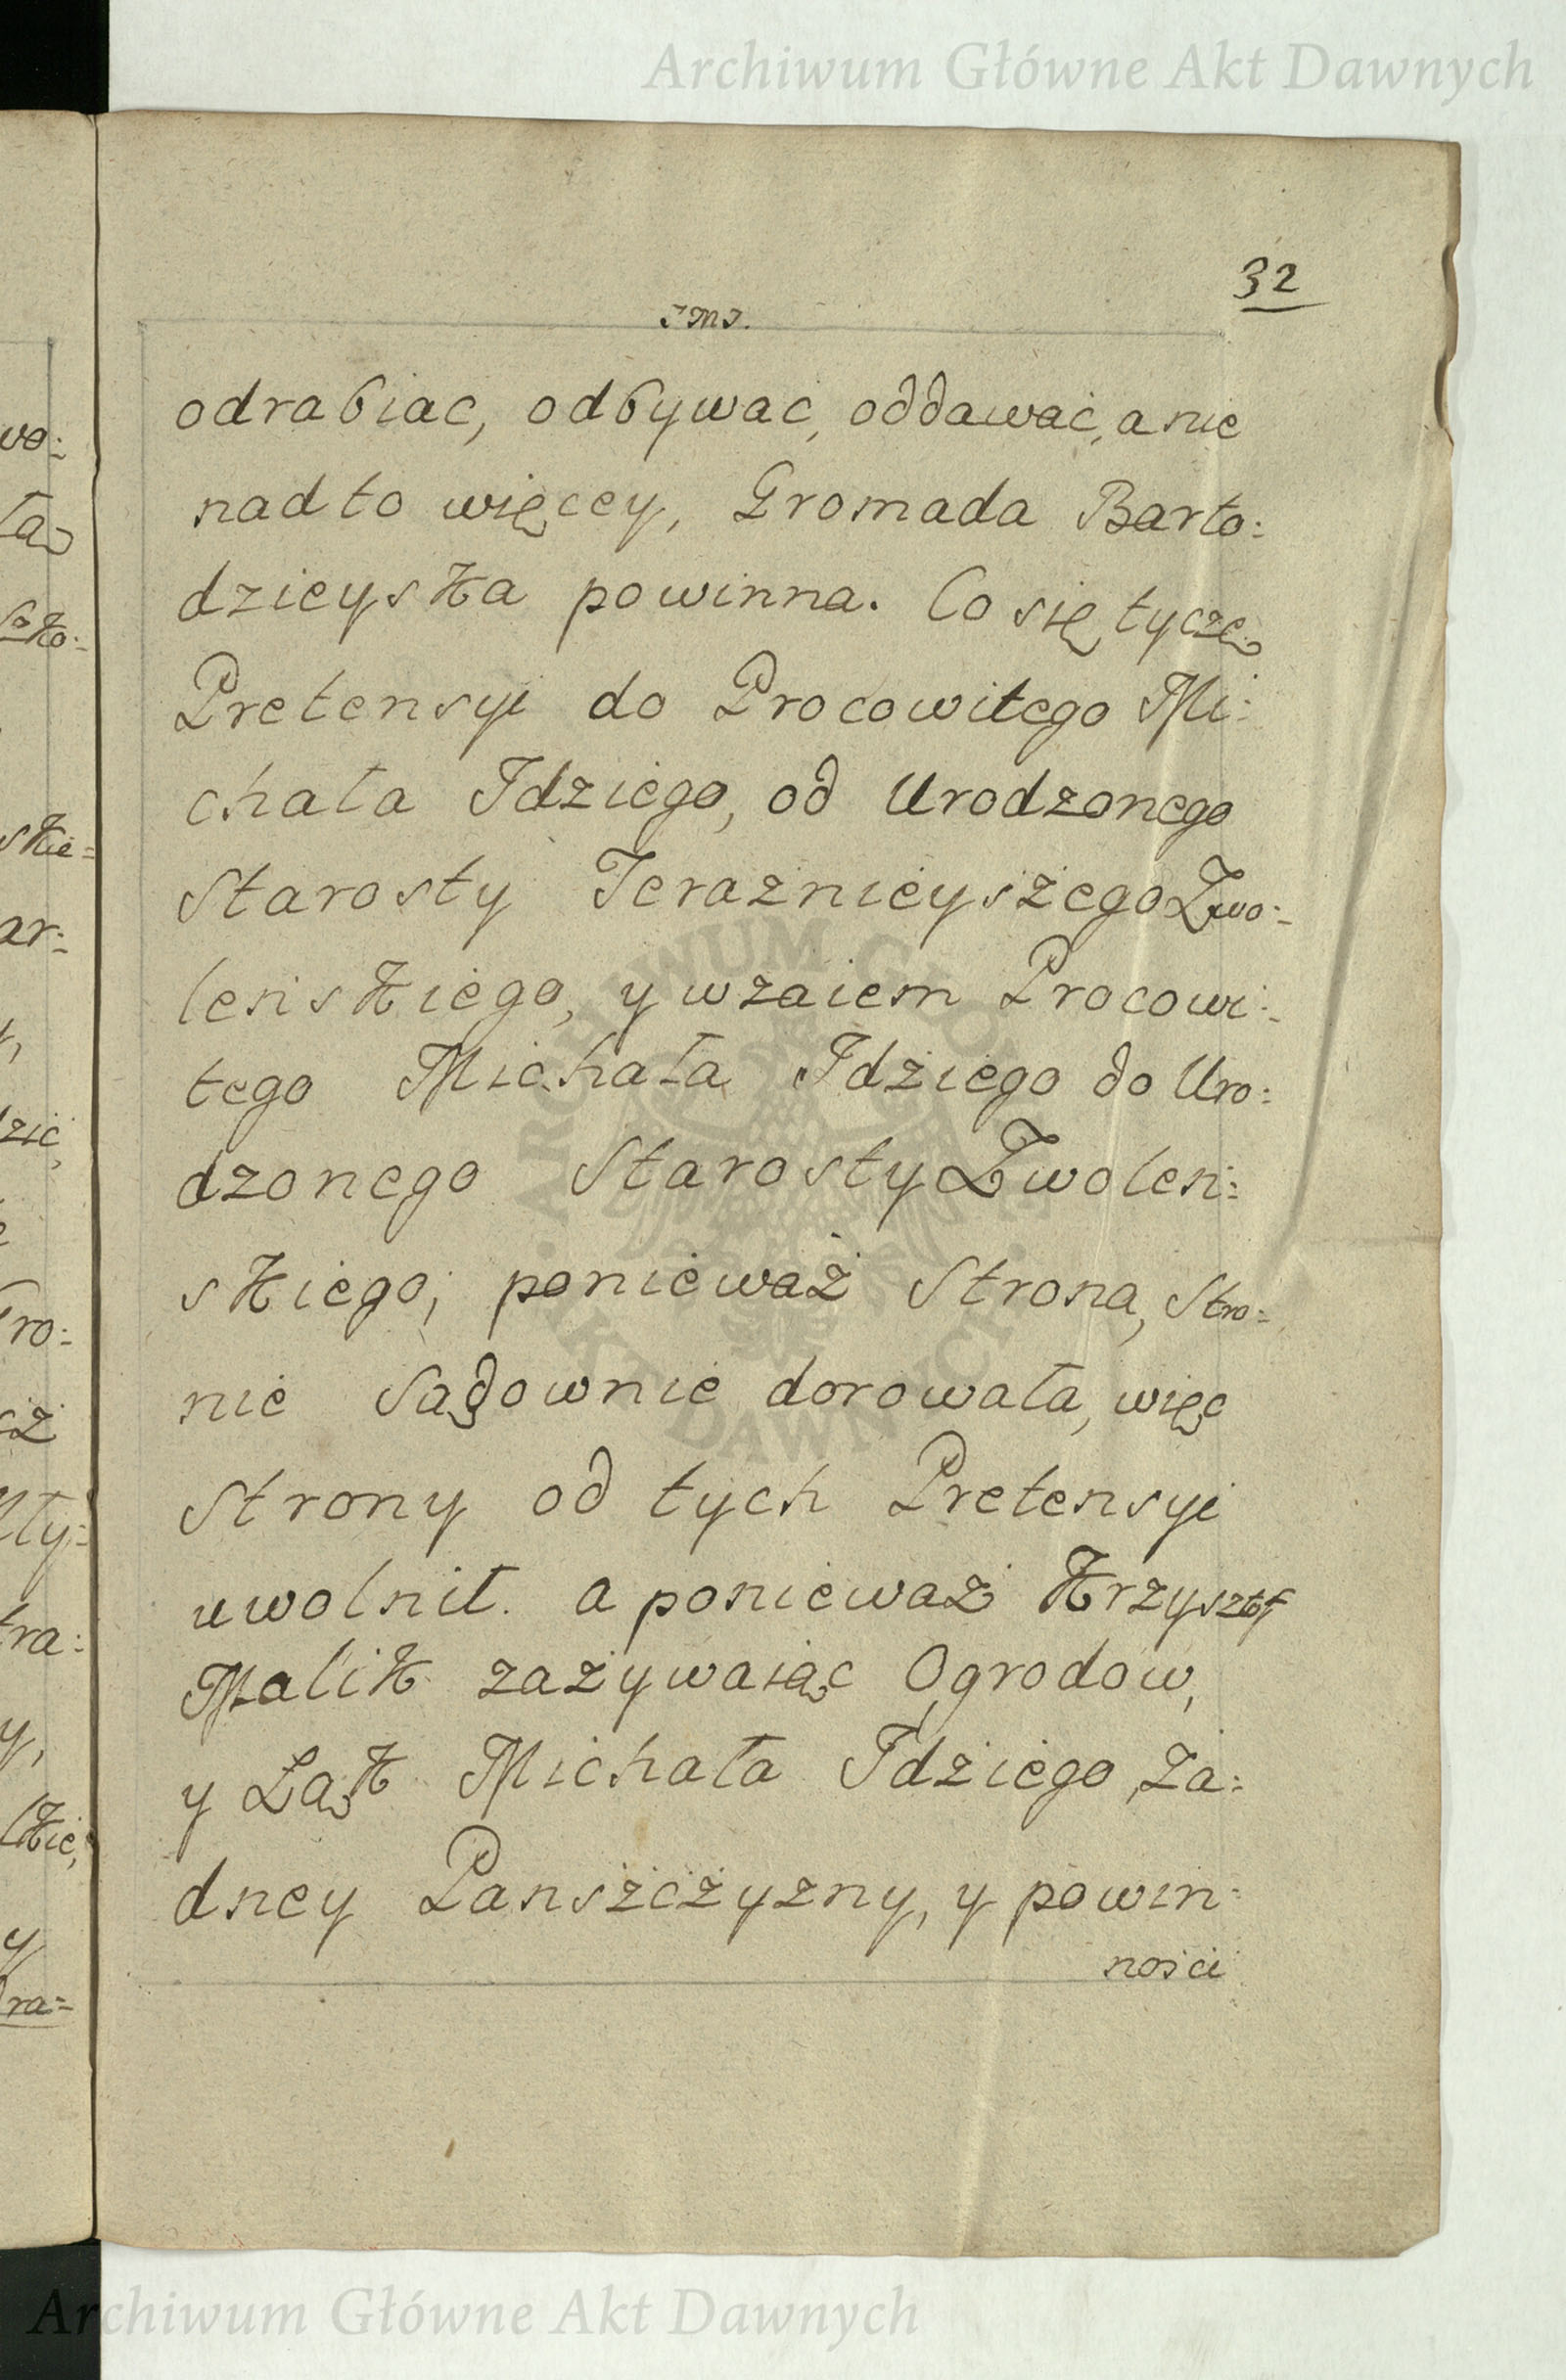 Archiwum Główne Akt Dawnych
32
J M J.
odrabiac, odbywac, oddawać, a nie
nad to więcey, Gromada Barto:
dzieyska powinna. Co się tyczę
Pretensyi do Procowitego Mi:
chała Idziego, od Urodzonego
Starosty Teraznieyszego Zwo:
lenskiego, y wzaiem Procowi:
tego Michała Idziego do Uro:
dzonego Starosty Zwolen:
skiego; ponieważ Strona, Stro:
nie Sądownie dorowała, więc
Strony od tych Pretensyi
uwolnił. a ponieważ Krzysztf
Malik zażywaiąc Ogrodow,
y Łąk Michała Idziego, Ża:
dney Panszczyzny, y powin:
ności
wo:
ła
ko:
skie=
ar:
zić,
ro:
sz
ły:
tra:
y,
kie,
y
ra=
ARCHIWUM GŁÓWNE
AKT DAWNYCH
Archiwum Główne Akt Dawnych